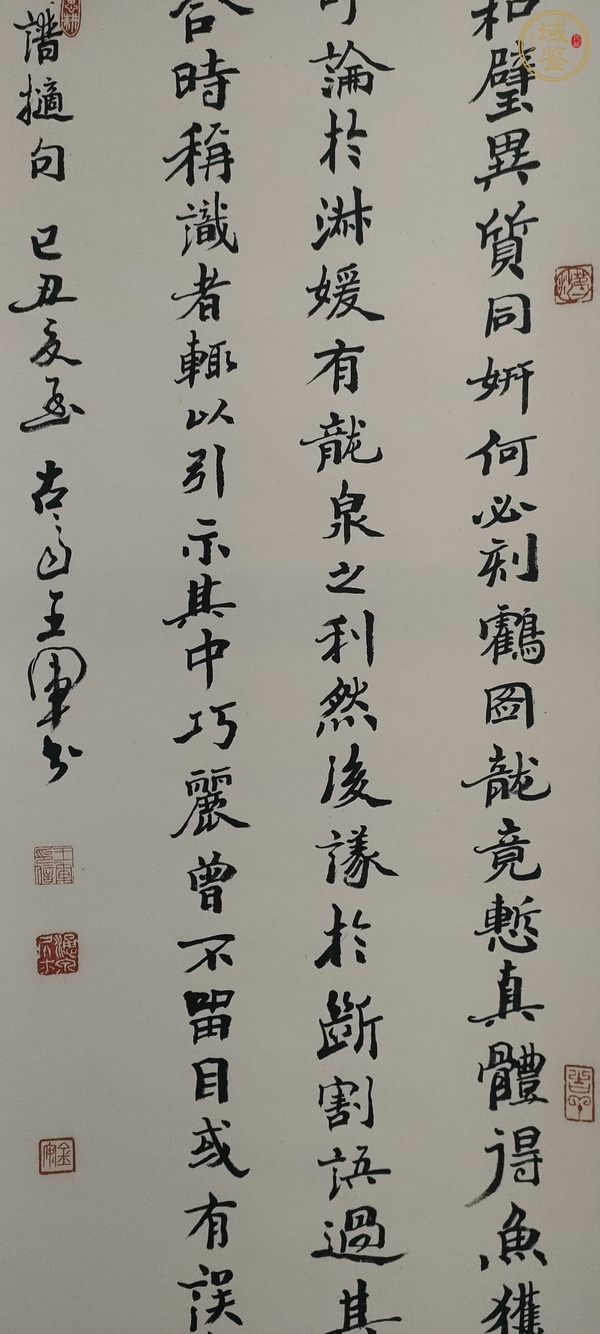 和璧異質同妍何必刻鶴图龍竟慙真體得魚獲
可論於淋媛有龍泉之利然後議於斷割語過其
合時稱識者輒以引示其中巧麗曾不留目或有誤
譜擿句 己丑夏至 古 王軍书
王軍印信
域鉴